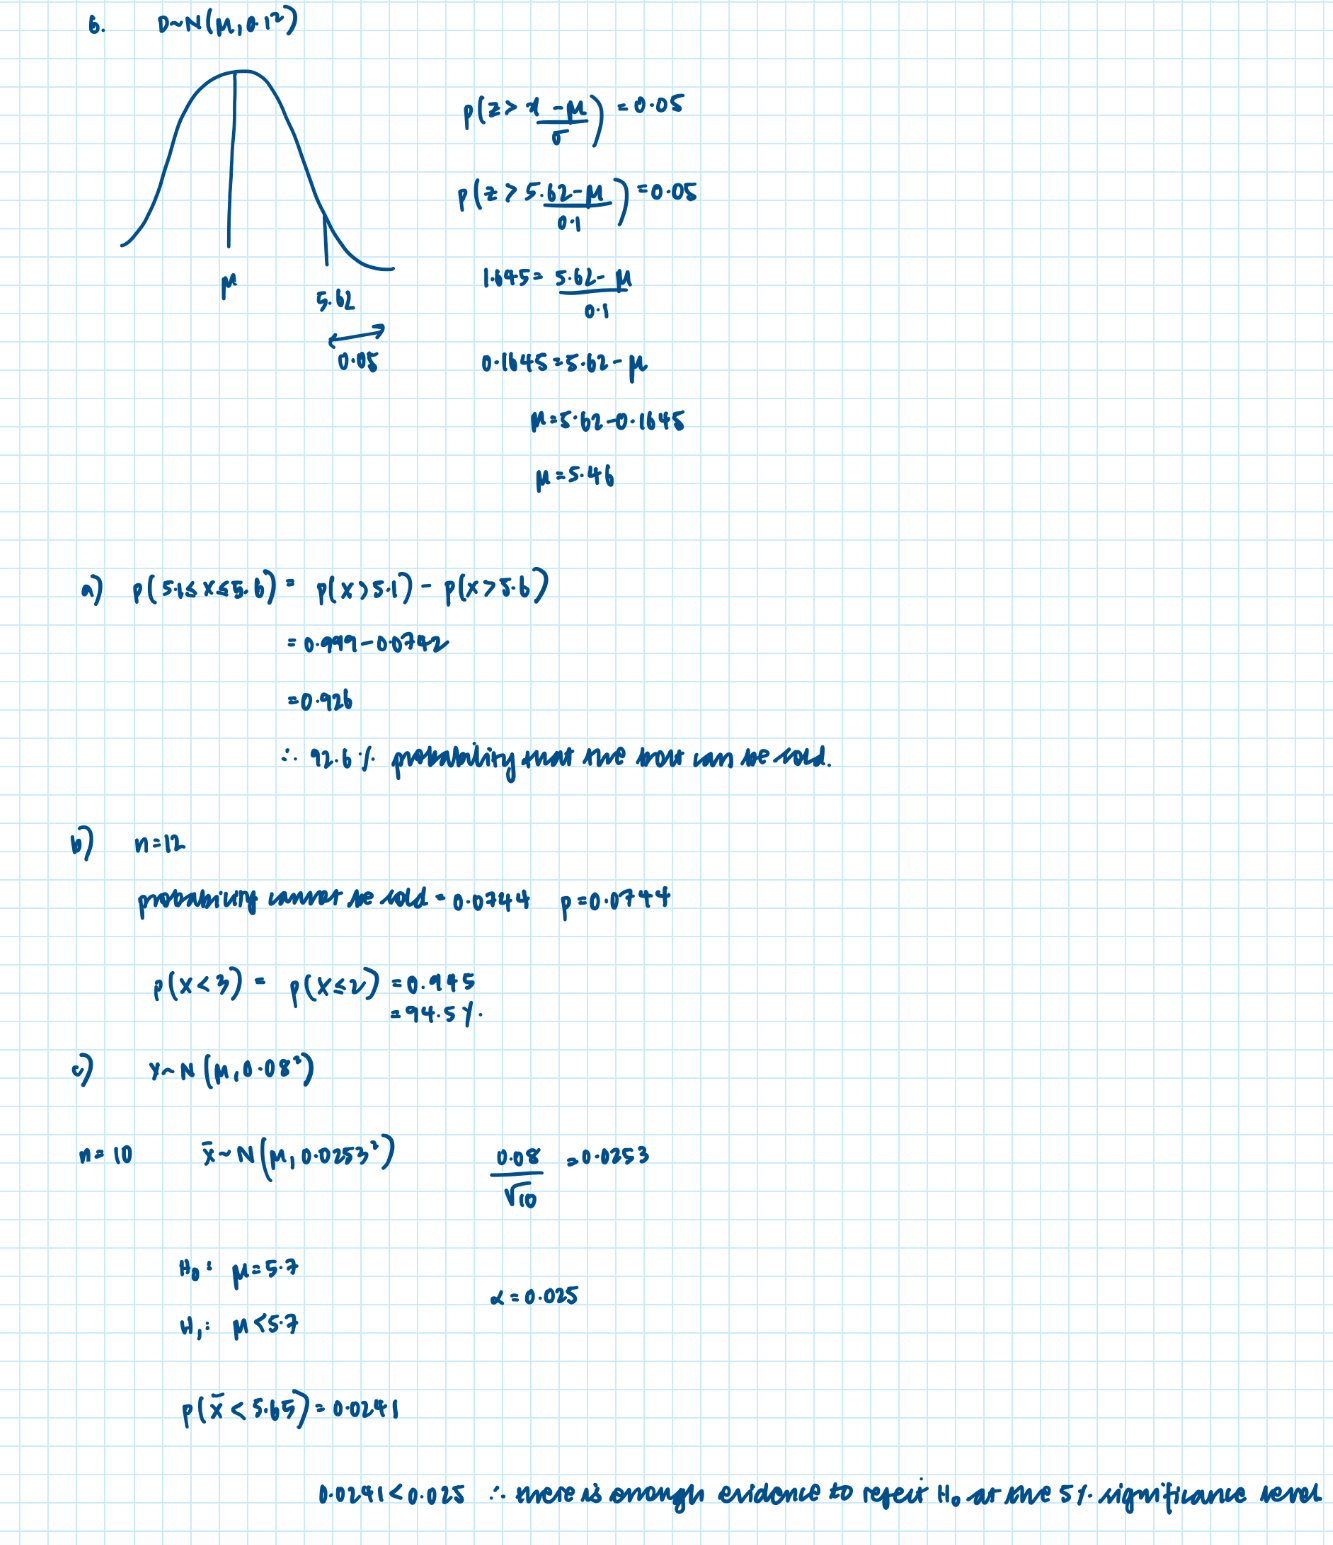 6. D~N(μ, 0.1²)
P(z > x-μ/σ) = 0.05
P(z > 5.62-μ/0.1) = 0.05
1.645 = 5.62-μ/0.1
0.1645 = 5.62-μ
μ = 5.62-0.1645
μ = 5.46
μ
5.62
0.05
a) P(5.1≤X≤5.6) = P(X>5.1) - P(X>5.6)
= 0.999-0.0742
= 0.926
∴ 92.6% probability that the bolt can be sold.
b) n=12
probability cannot be sold = 0.0744 p=0.0744
P(X<3) = P(X≤2) = 0.945
= 94.5%.
c) Y~N(μ, 0.08²)
n=10 x̄~N(μ, 0.0253²) 0.08/√10 = 0.0253
H₀: μ=5.7
α=0.025
H₁: μ<5.7
P(x̄<5.65) = 0.0241
0.0241<0.025 ∴ there is enough evidence to reject H₀ at the 5% significance level